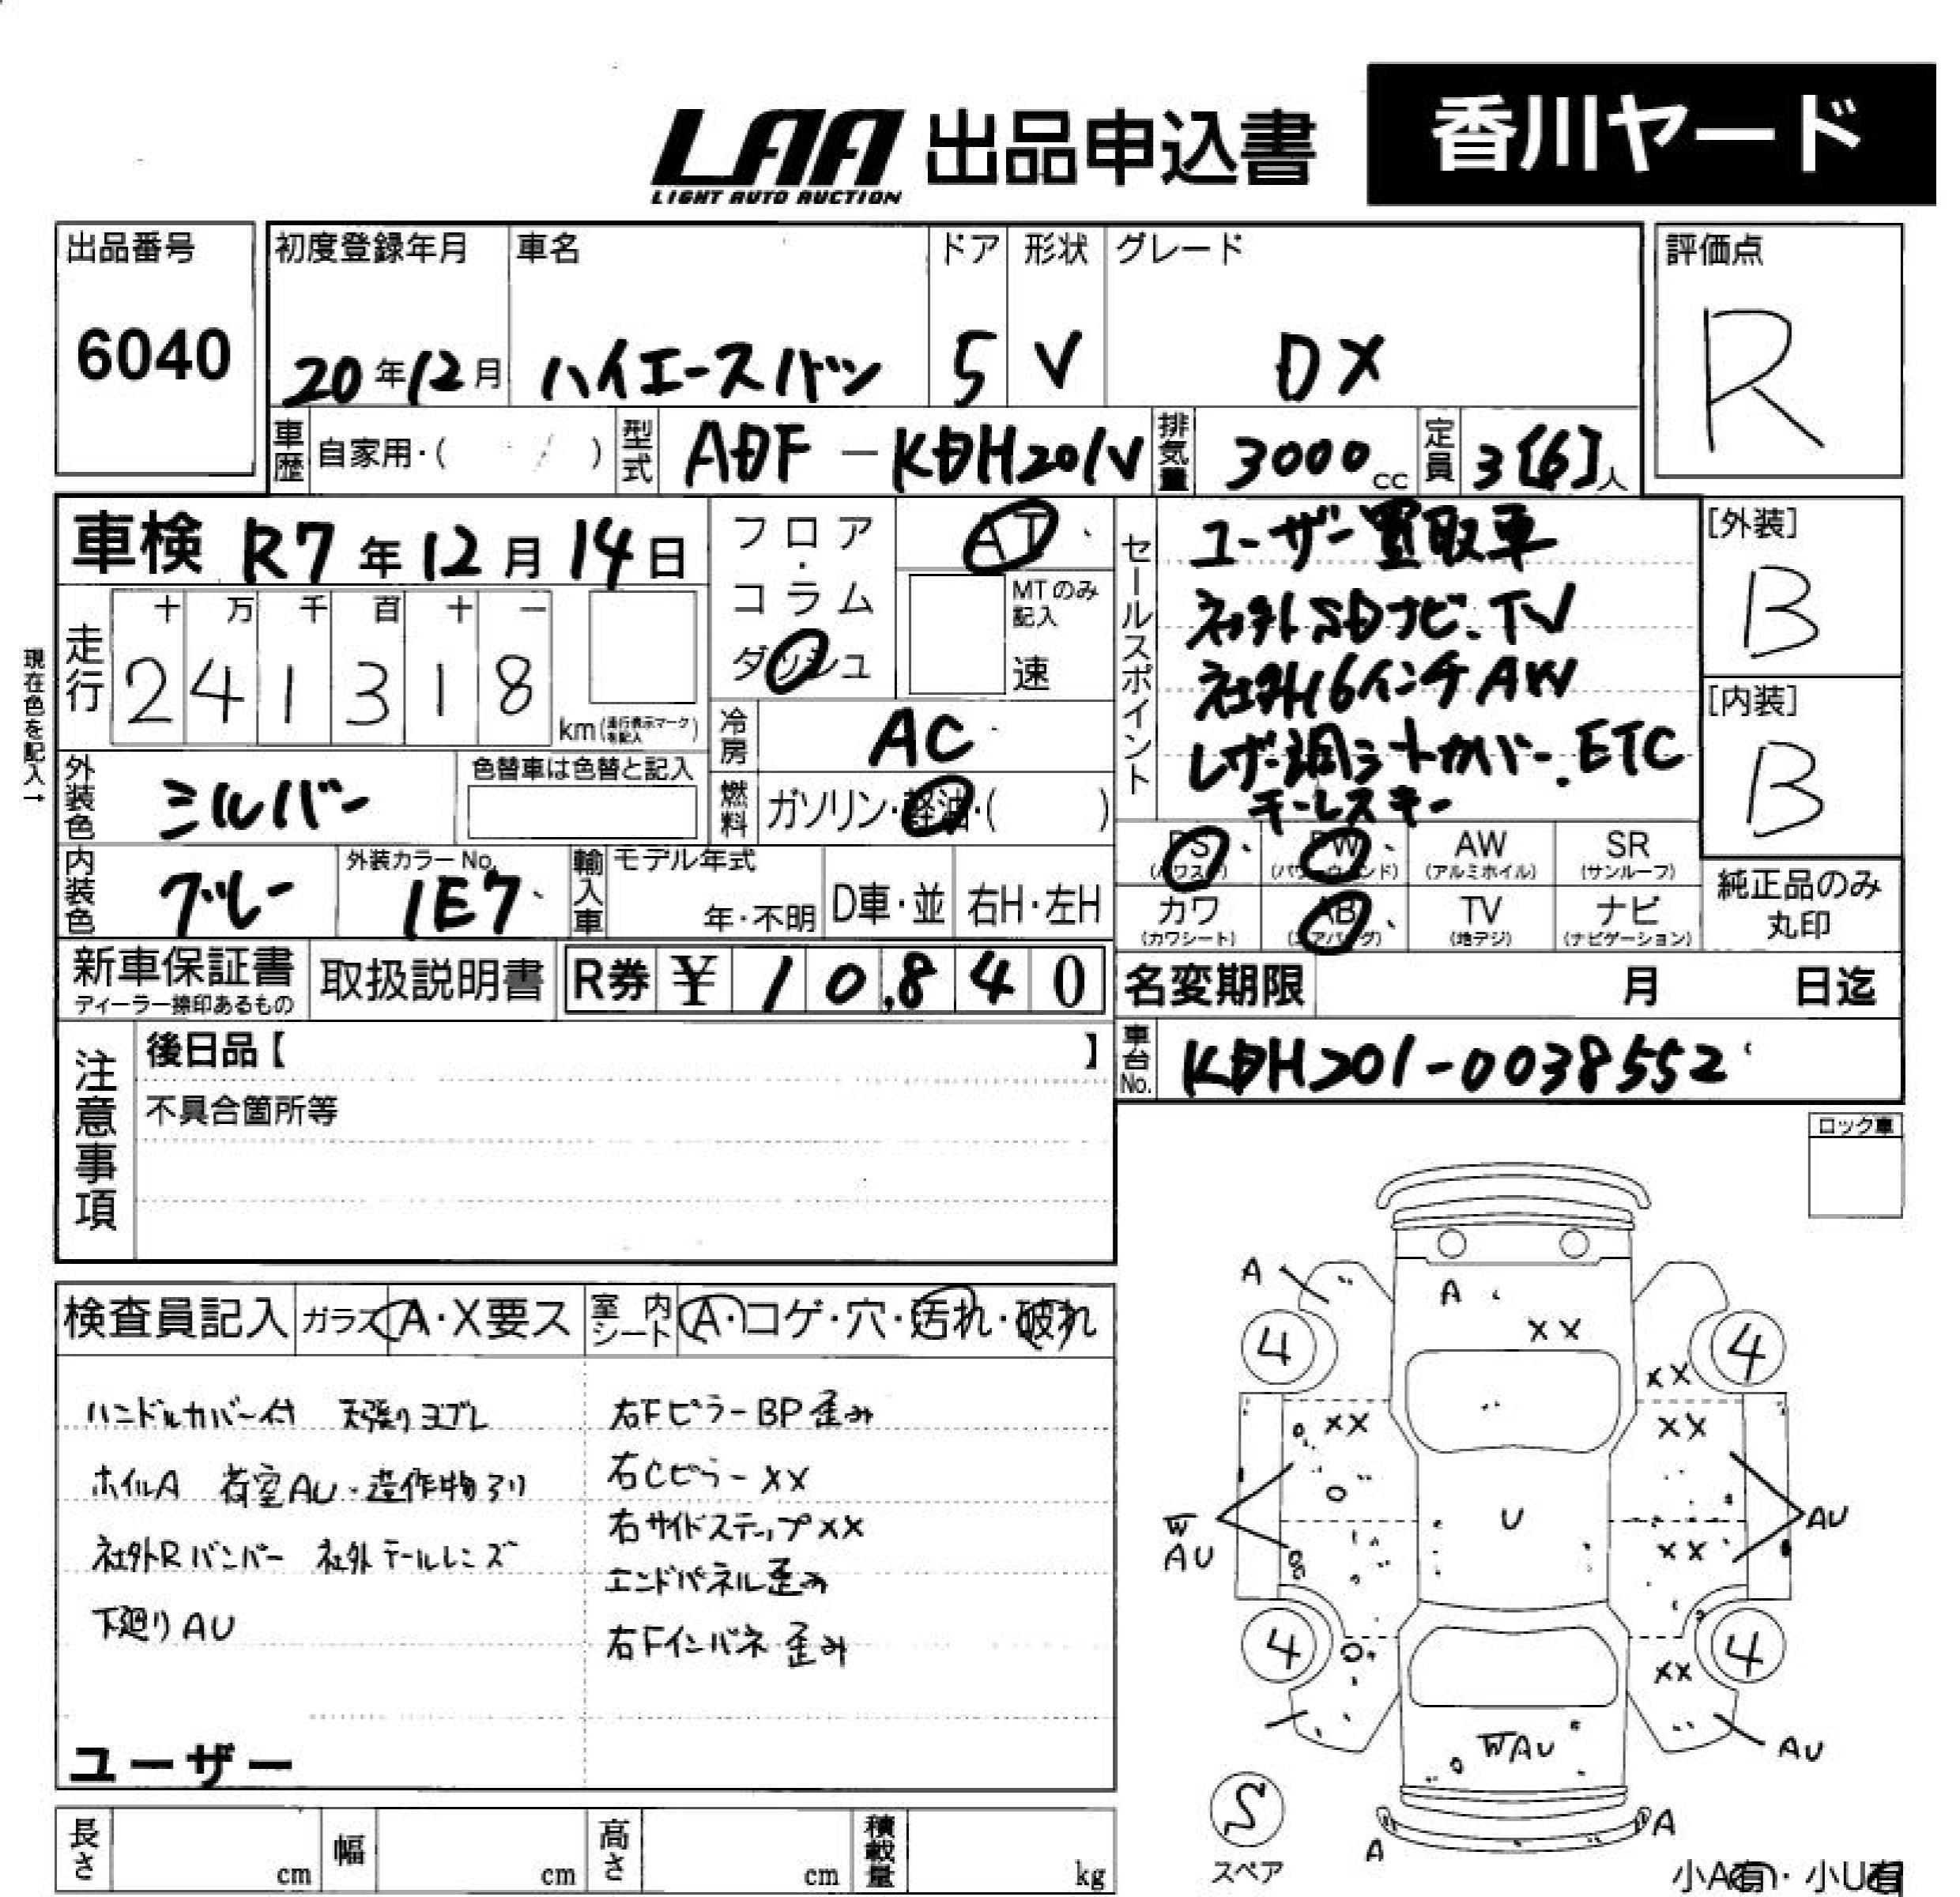 LAA 出品申込書 香川ヤード
LIGHT AUTO AUCTION
出品番号 初度登録年月 車名 ドア 形状 グレード 評価点
6040 20年12月 ハイエースバン 5 V DX R
車歴 自家用・( / ) 型式 ADF-KDH201V 排気量 3000cc 定員 3[6]人
車検 R7年12月14日
フロア・コラム ダッシュ
AT
MTのみ記入
速
セールスポイント
ユーザー買取車
社外SDナビ.TV
社外16インチAW
レザー調シートカバー.ETC
キーレスキー
[外装]
B
[内装]
B
現在色を記入→
走行 十 万 千 百 十 一
2 4 1 3 1 8
km(走行表示マークを記入)
冷房 AC
外装色 シルバー 色替車は色替と記入
燃料 ガソリン・軽油・( )
内装色 グレー 外装カラーNo. 1E7
輸入車 モデル年式 年・不明 D車・並 右H・左H
PS (パワステ) PW (パワーウインド) AW (アルミホイル) SR (サンルーフ)
カワ (カワシート) AB (エアバッグ) TV (地デジ) ナビ (ナビゲーション)
純正品のみ
丸印
新車保証書 ディーラー捺印あるもの 取扱説明書 R券 ¥ 10,840
名変期限 月 日迄
車台No. KDH201-0038552
注意事項
後日品【 】
不具合箇所等
ロック車
検査員記入 ガラス A・X要ス 室内シート A・コゲ・穴・汚れ・破れ
ハンドルカバー付 天張りヨゴレ
ホイルA 荷室AU・造作物有り
社外Rバンパー 社外テールレンズ
下廻りAU
右FピラーBP歪み
右CピラーXX
右サイドステップXX
エンドパネル歪み
右Fインパネ歪み
ユーザー
A
A
XX
4
4
XX
XX
XX
W
AU
U
AU
XX
4
4
XX
WAU
AU
S
スペア
A
A
長さ cm 幅 cm 高さ cm 積載量 kg
小A有・小U有